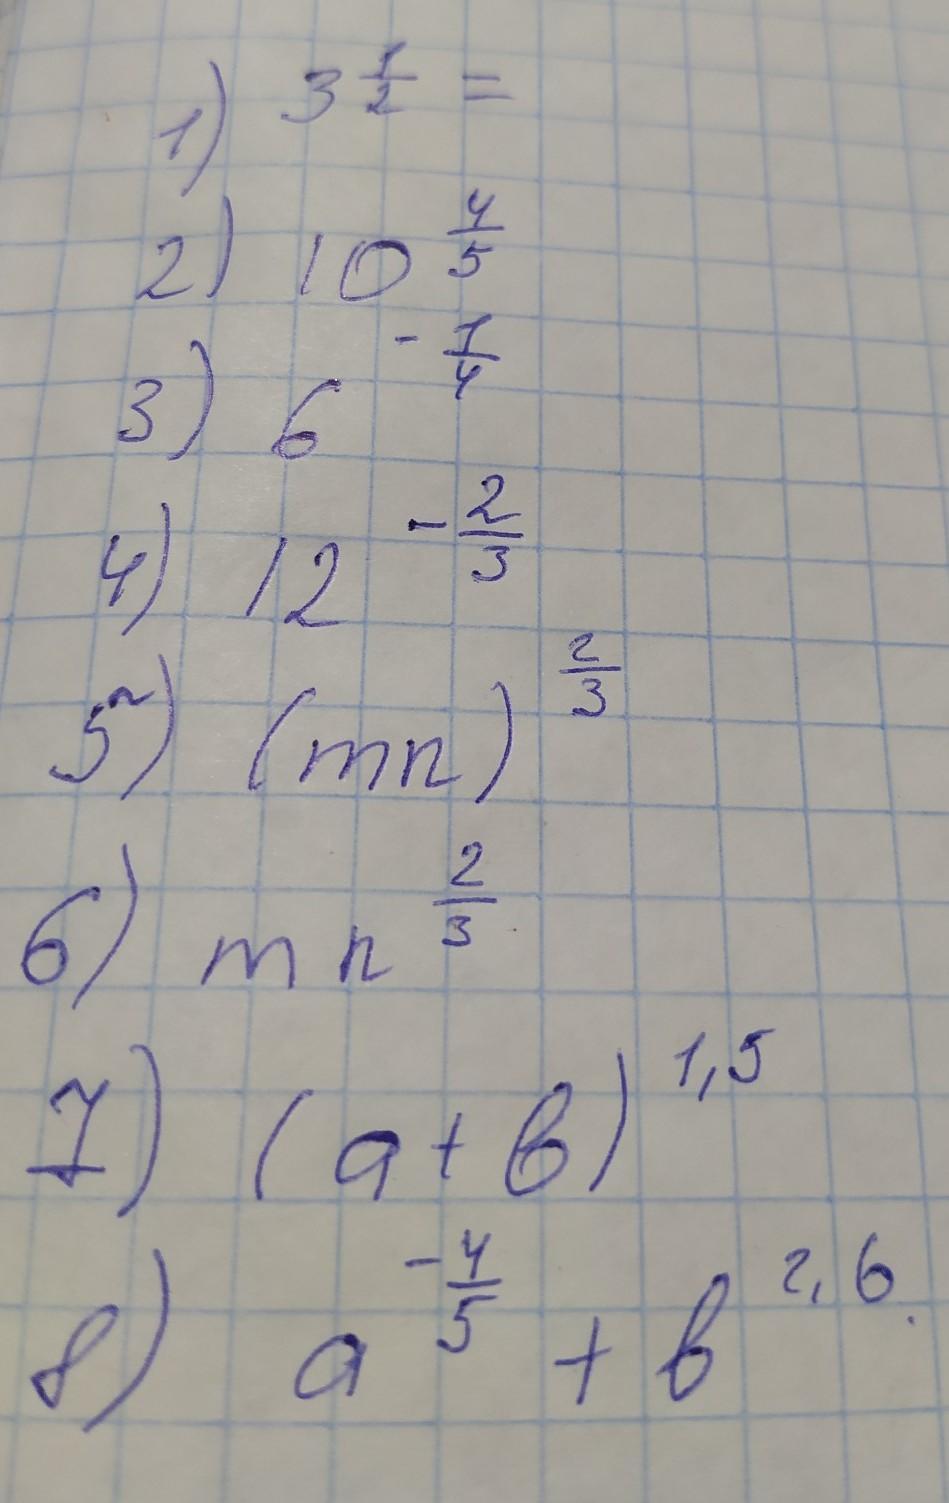 1) 3^{\frac{1}{2}} =
2) 10^{\frac{4}{5}}
3) 6^{-\frac{1}{4}}
4) 12^{-\frac{2}{3}}
5) (mn)^{\frac{2}{3}}
6) mn^{\frac{2}{3}}
7) (a+b)^{1,5}
8) a^{-\frac{4}{5}} + b^{2,6}